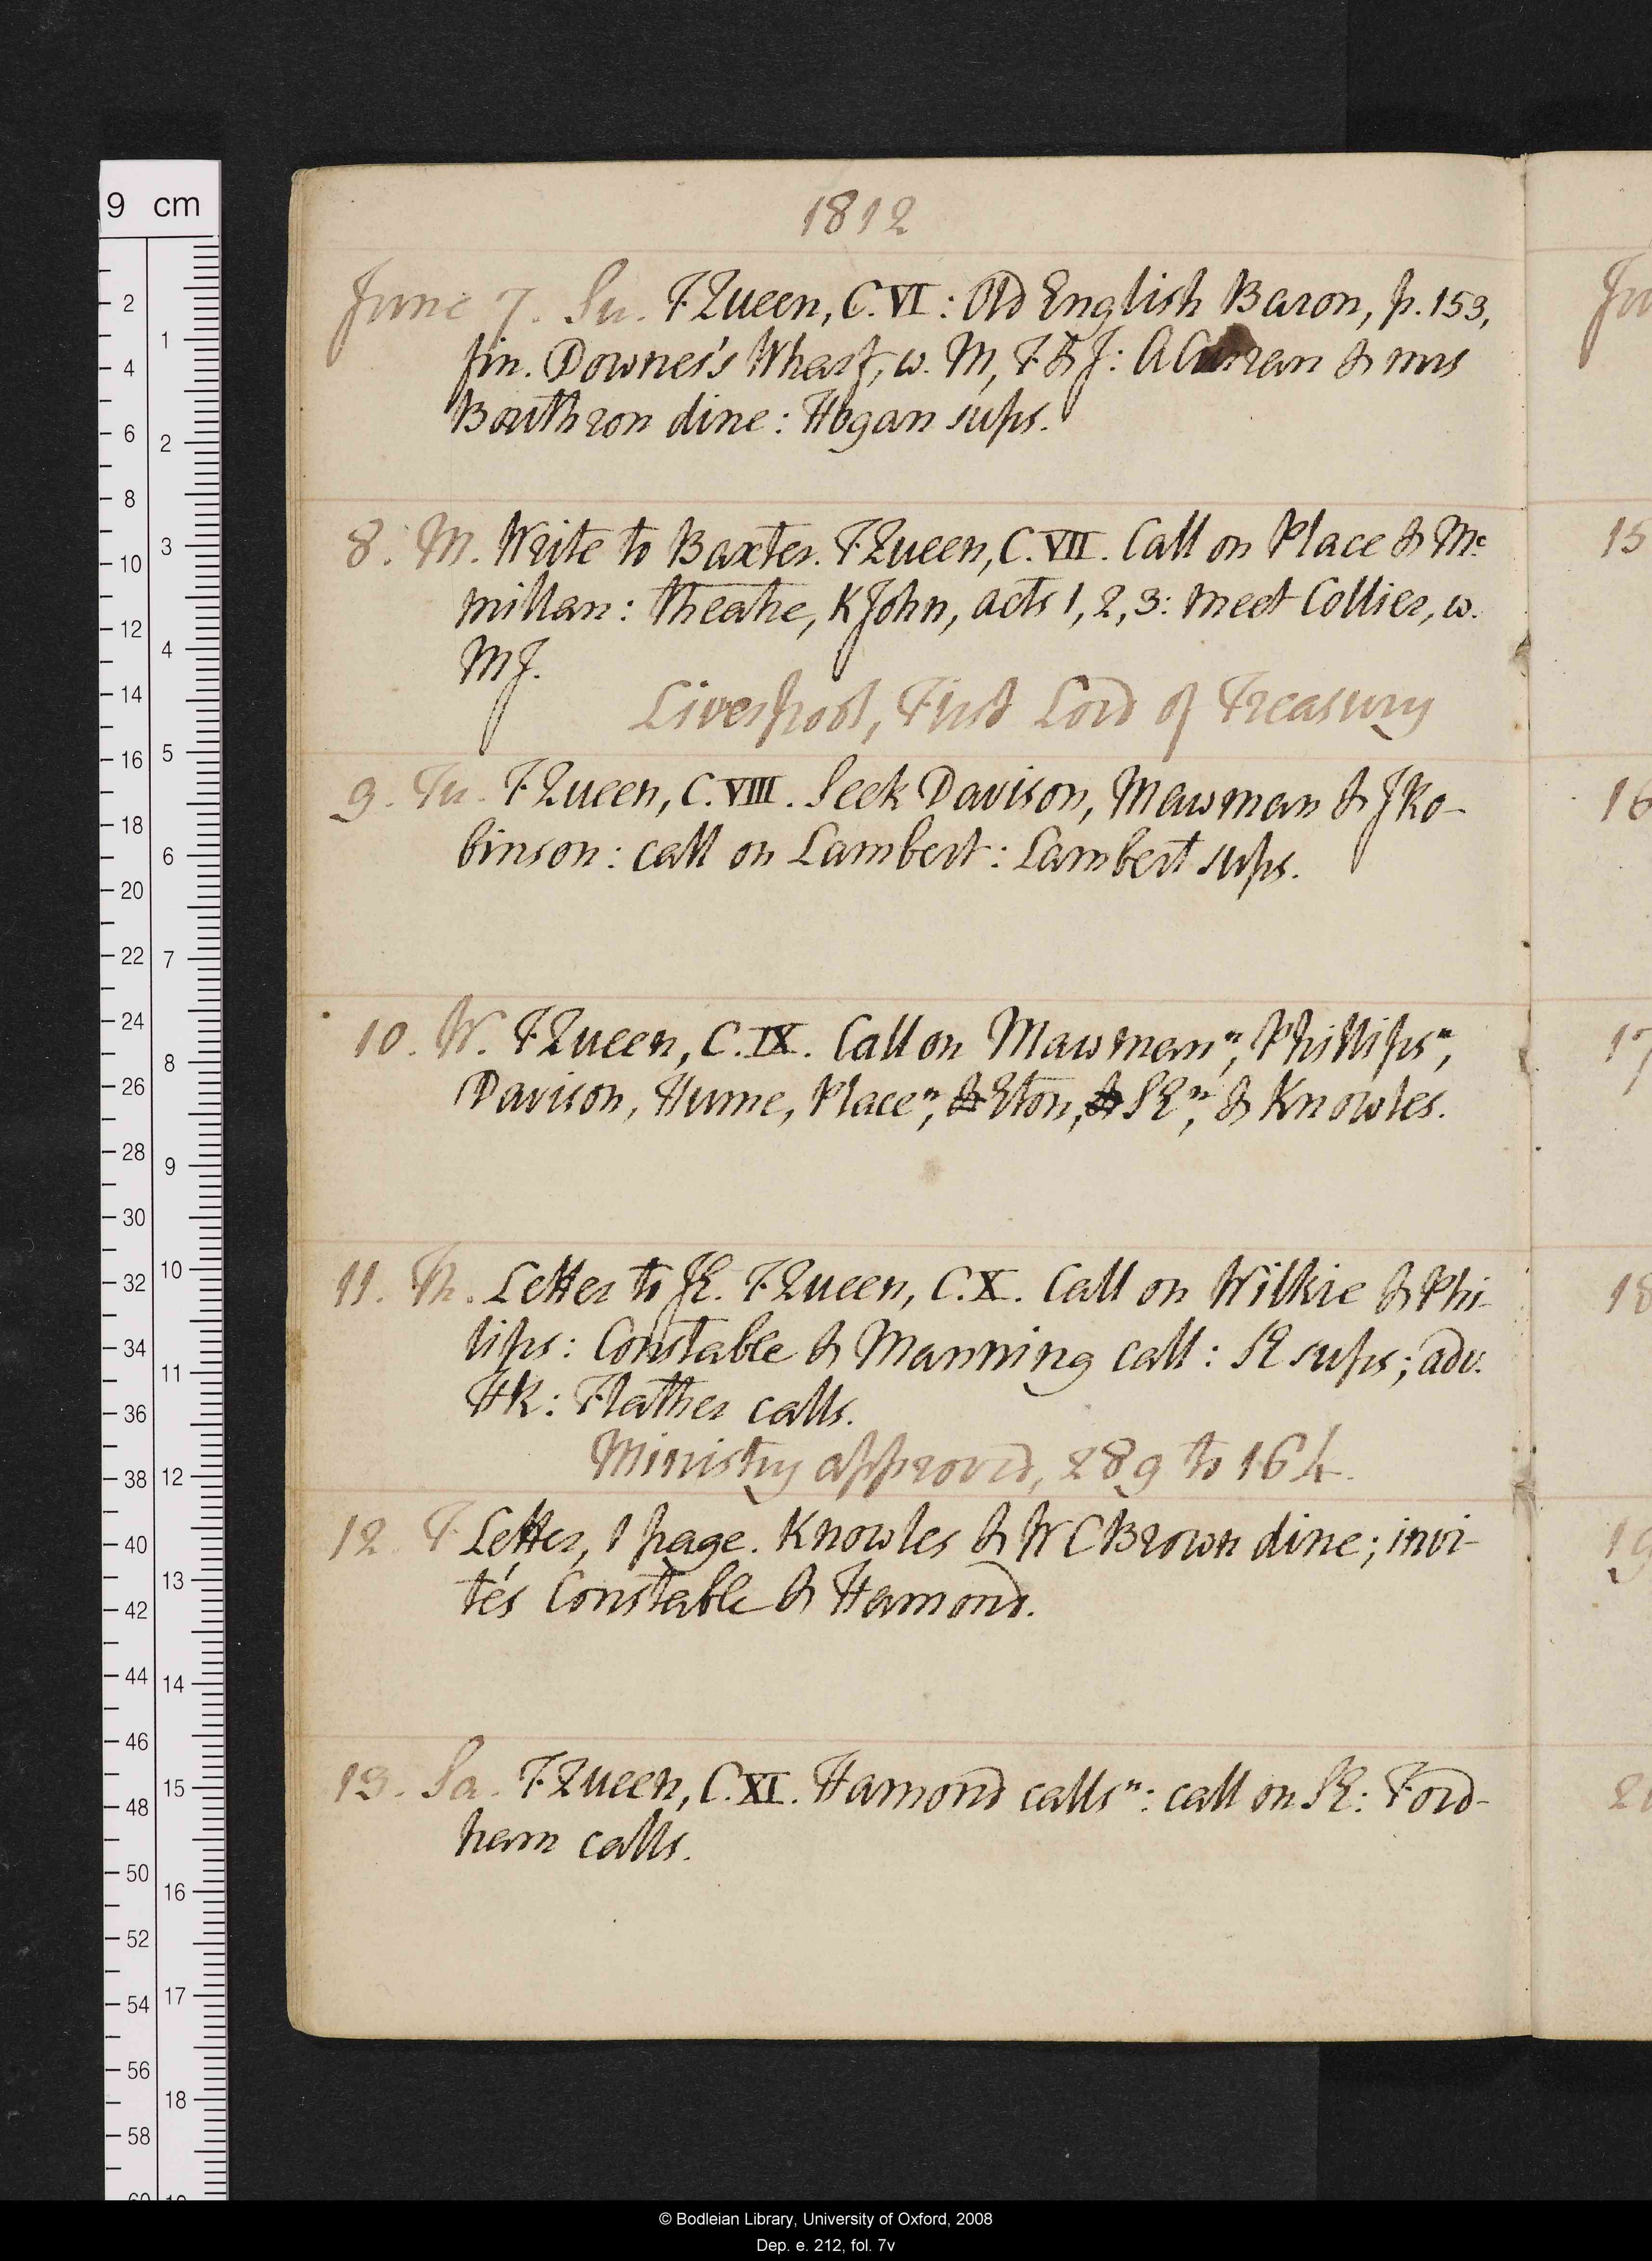 1812
June 7. Su. F Queen, C. VI: Old English Baron, p. 153,
fin. Downes's Wharf, w. M, F & J: A Curran & mrs
Bouthron dine: Hogan sups.
8. M. Write to Baxter. F Queen, C. VII. Call on Place & Mc
millan: theatre, K John, acts 1, 2, 3: meet Collier, w.
MJ.
Liverpool, First Lord of Treasury
9. Tu. F Queen, C. VIII. Seek Davison, Mawman & J Ro-
binson: call on Lambert: Lambert sups.
10. W. F Queen, C. IX. Call on Mawman n, Phillips n,
Davison, Hume, Place n, & Eton, & SE n, & Knowles.
11. Th. Letter to JE. F Queen, C. X. Call on Wilkie & Phi-
lips: Constable & Manning call: SE sups; adv.
HR: Flather calls.
Ministry approved, 289 to 164.
12. F Letter, 1 page. Knowles & W C Brown dine; invi-
tés Constable & Hamond.
13. Sa. F Queen, C. XI. Hamond calls n: call on SE: Ford-
ham calls.
15
16
17
18
19
9 cm
2
4
6
8
10
12
14
16
18
20
22
24
26
28
30
32
34
36
38
40
42
44
46
48
50
52
54
56
58
60
1
2
3
4
5
6
7
8
9
10
11
12
13
14
15
16
17
18
© Bodleian Library, University of Oxford, 2008
Dep. e. 212, fol. 7v